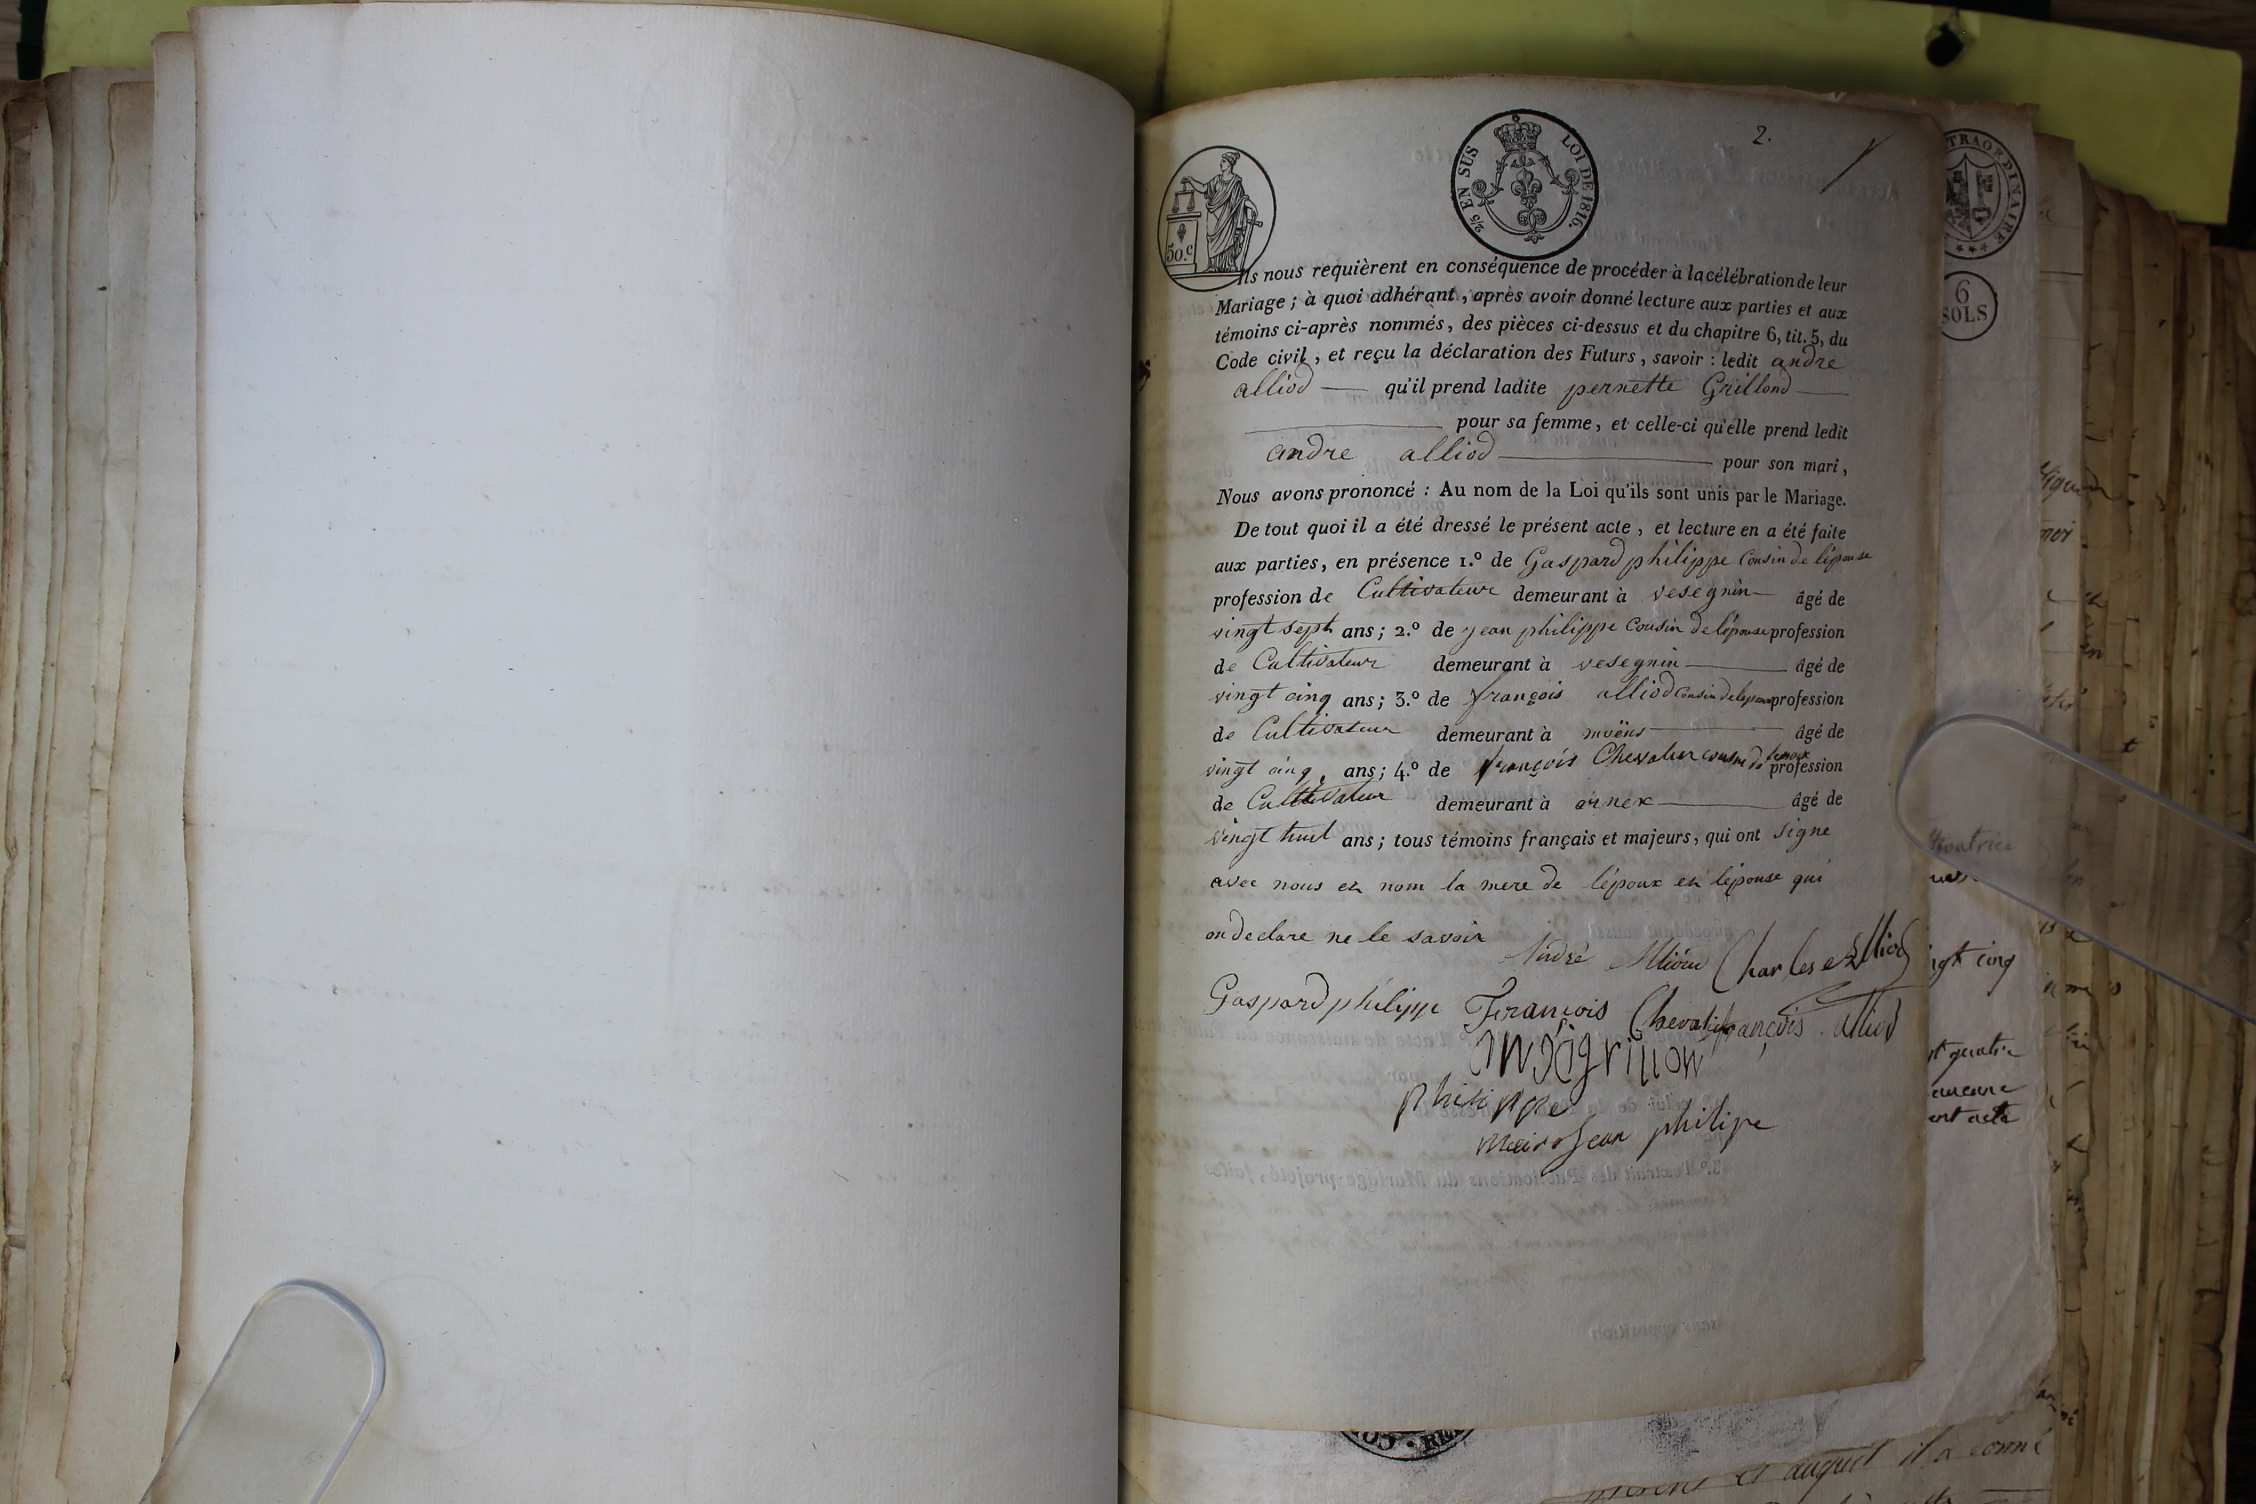 2.
2/5 EN SUS
LOI DE 1816.
50.c
TRAORDINAIRE
6
SOLS
Ils nous requièrent en conséquence de procéder à la célébration de leur
Mariage ; à quoi adhérant, après avoir donné lecture aux parties et aux
témoins ci-après nommés, des pièces ci-dessus et du chapitre 6, tit. 5, du
Code civil, et reçu la déclaration des Futurs, savoir : ledit andre
alliod qu'il prend ladite pernette Grillond
pour sa femme, et celle-ci qu'elle prend ledit
andre alliod pour son mari,
Nous avons prononcé : Au nom de la Loi qu'ils sont unis par le Mariage.
De tout quoi il a été dressé le présent acte, et lecture en a été faite
aux parties, en présence 1.º de Gaspard philippe Cousin de lépouse
profession de Cultivateur demeurant à vesegnin âgé de
vingt sept ans ; 2.º de jean philippe Cousin de lépouse profession
de Cultivateur demeurant à vesegnin âgé de
vingt cinq ans ; 3.º de françois alliod cousin de lepoux profession
de Cultivateur demeurant à moëns âgé de
vingt cinq ans ; 4.º de françois Chevalier cousin de lepoux profession
de Cultivateur demeurant à ornex âgé de
vingt huit ans ; tous témoins français et majeurs, qui ont signe
avec nous et nom la mere de lépoux et lépouse qui
on declare ne le savoir
André Alliod Charles Alliod
Gaspard philippe François Chevalier françois alliod
philippe
maire Jean philipe
ngt cinq
aucune
ent acte
il a donné